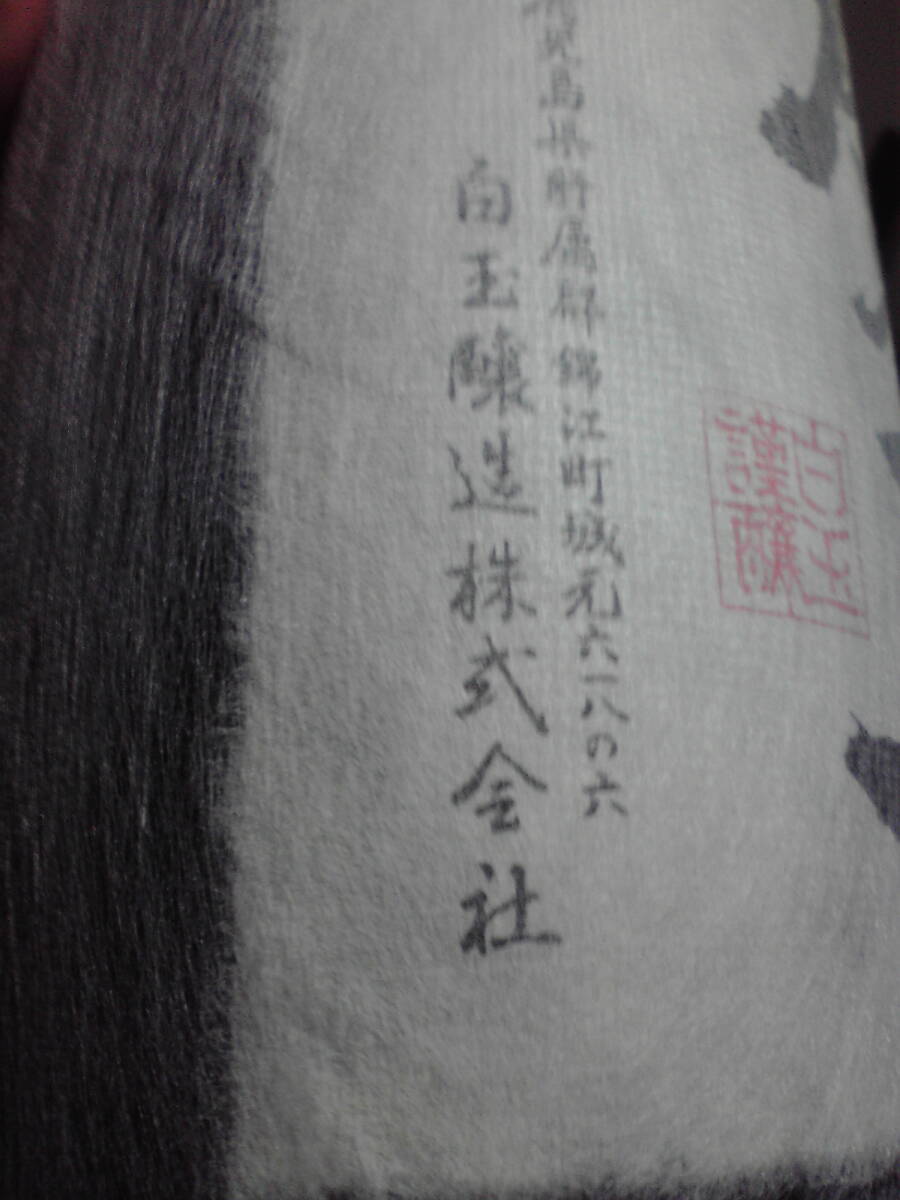 白玉謹醸
児島県肝属郡錦江町城元六一八の六
白玉醸造株式会社